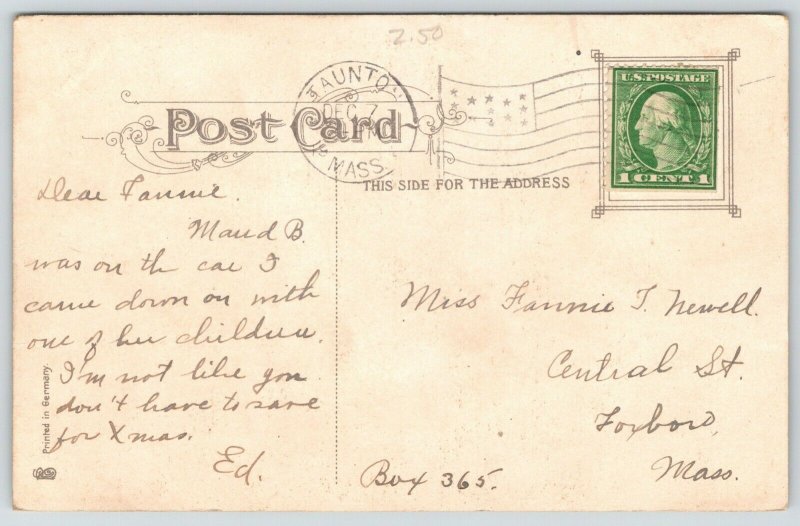 2.50
TAUNTON
DEC 7
MASS.
U.S. POSTAGE
1 CENT 1
Post Card
THIS SIDE FOR THE ADDRESS
Dear Fannie.
Maud B.
was on the car I
came down on with
one of her children.
I'm not like you
don't have to save
for Xmas.
Ed.
Miss Fannie T. Newell.
Central St.
Foxboro,
Mass.
Box 365.
Printed in Germany.